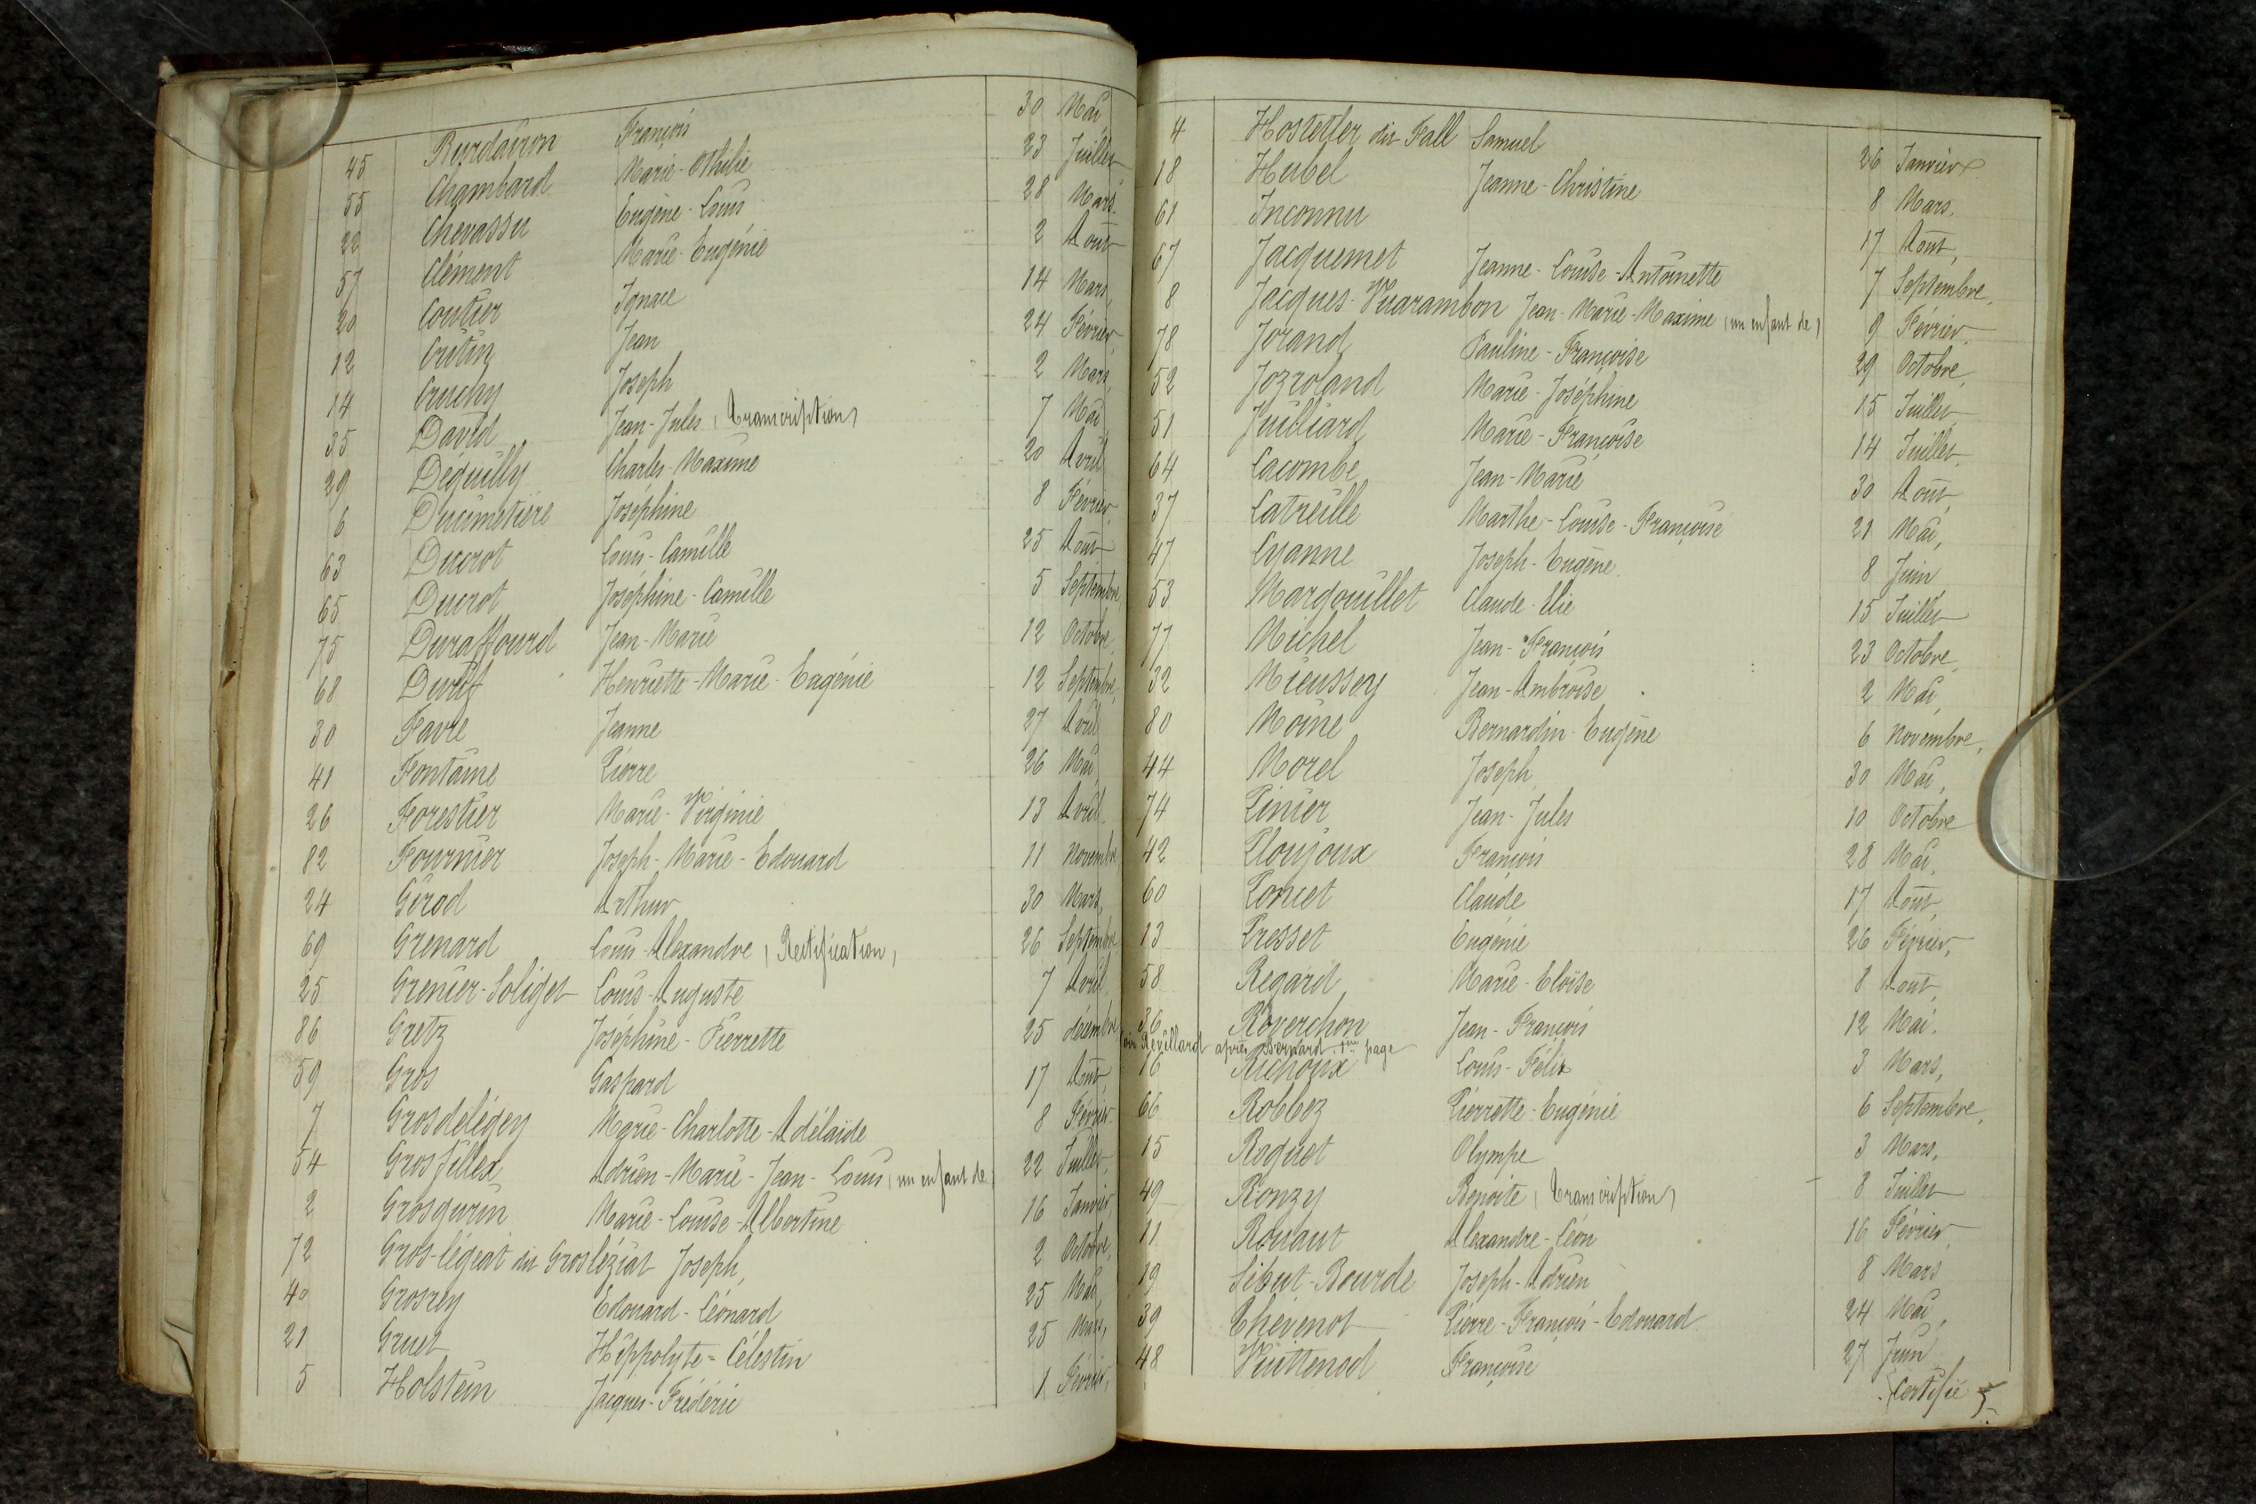 45 Burdairon François 30 Mai
55 Chambard Marie-Othilie 23 Juillet
22 Chevassu Eugène-Louis 28 Mars
57 Clément Marie-Eugénie 2 Août
20 Coutier Ignace 14 Mars,
12 Critin Jean 24 Février
14 Cruchy Joseph 2 Mars
35 David Jean-Jules (transcription) 7 Mai
29 Déquilly Charles-Maxime 20 Avril
6 Ducimetière Joséphine 8 Février
63 Ducrot Louis-Camille 25 Août
65 Ducrot Joséphine-Camille 5 Septembre
75 Duraffourd Jean-Marie 12 Octobre
68 Duvif Henriette-Marie-Eugénie 12 Septembre
30 Favre Jeanne 27 Avril
41 Fontaine Pierre 26 Mai
26 Forestier Marie-Virginie 13 Avril
82 Fournier Joseph-Marie-Edouard 11 Novembre
24 Girod Arthur 30 Mars,
69 Grenard Louis-Alexandre (Rectification) 26 Septembre
25 Grenier-Soliget Louis-Auguste 7 Avril
86 Gretz Joséphine-Pierrette 25 décembre
59 Gros Gaspard 17 Août,
7 Grosdelégey Marie-Charlotte-Adélaïde 8 Février
54 Grosfillex Adrien-Marie-Jean-Louis (un enfant de) 22 Juillet,
2 Grosgurin Marie-Louise-Albertine 16 Janvier
72 Gros-légeat dit Grosléziat Joseph, 2 Octobre,
40 Grosrey Edouard-Léonard 25 Mai,
21 Gruet Hippolyte-Célestin 25 Mars,
5 Holstein Jacques-Frédéric 1 Février,
4 Hostetler dit Fall Samuel 26 Janvier
18 Hubel Jeanne-Christine 8 Mars.
61 Inconnu 17 Août,
67 Jacquemet Jeanne-Louise-Antoinette 7 Septembre,
8 Jacques-Vuarambon Jean-Marie-Maxime (un enfant de) 9 Février
78 Jorand Pauline-Françoise 29 Octobre,
52 Jozroland Marie-Joséphine 15 Juillet
51 Juilliard Marie-Françoise 14 Juillet
64 Lacombe Jean-Marie 30 Août,
37 Latreille Marthe-Louise-Françoise 21 Mai,
47 Lyanne Joseph-Eugène 8 Juin
53 Margouillet Claude-Elie 15 Juillet
77 Michel Jean-François 23 Octobre,
32 Mieussey Jean-Ambroise 2 Mai,
80 Moine Bernardin-Eugène 6 Novembre,
44 Morel Joseph 30 Mai,
74 Pinier Jean-Jules 10 Octobre
42 Ploujoux François 28 Mai,
60 Poncet Claude 17 Août
13 Presset Eugénie 26 Février,
58 Regard Marie-Eloïse 8 Août,
36 Reverchon Jean-François 12 Mai.
voir Révillard après Bernard 1ère page
16 Richoux Louis-Félix 3 Mars,
66 Robbez Pierrette-Eugénie 6 Septembre,
15 Roguet Olympe 3 Mars,
49 Ronzy Benoite (transcription) 8 Juillet
11 Rouaut Alexandre-Léon 16 Février
19 Sibut-Bourde Joseph-Adrien 8 Mars
39 Thévenot Pierre-François-Edouard 24 Mai,
48 Vuittenod Françoise 27 Juin
Certifié